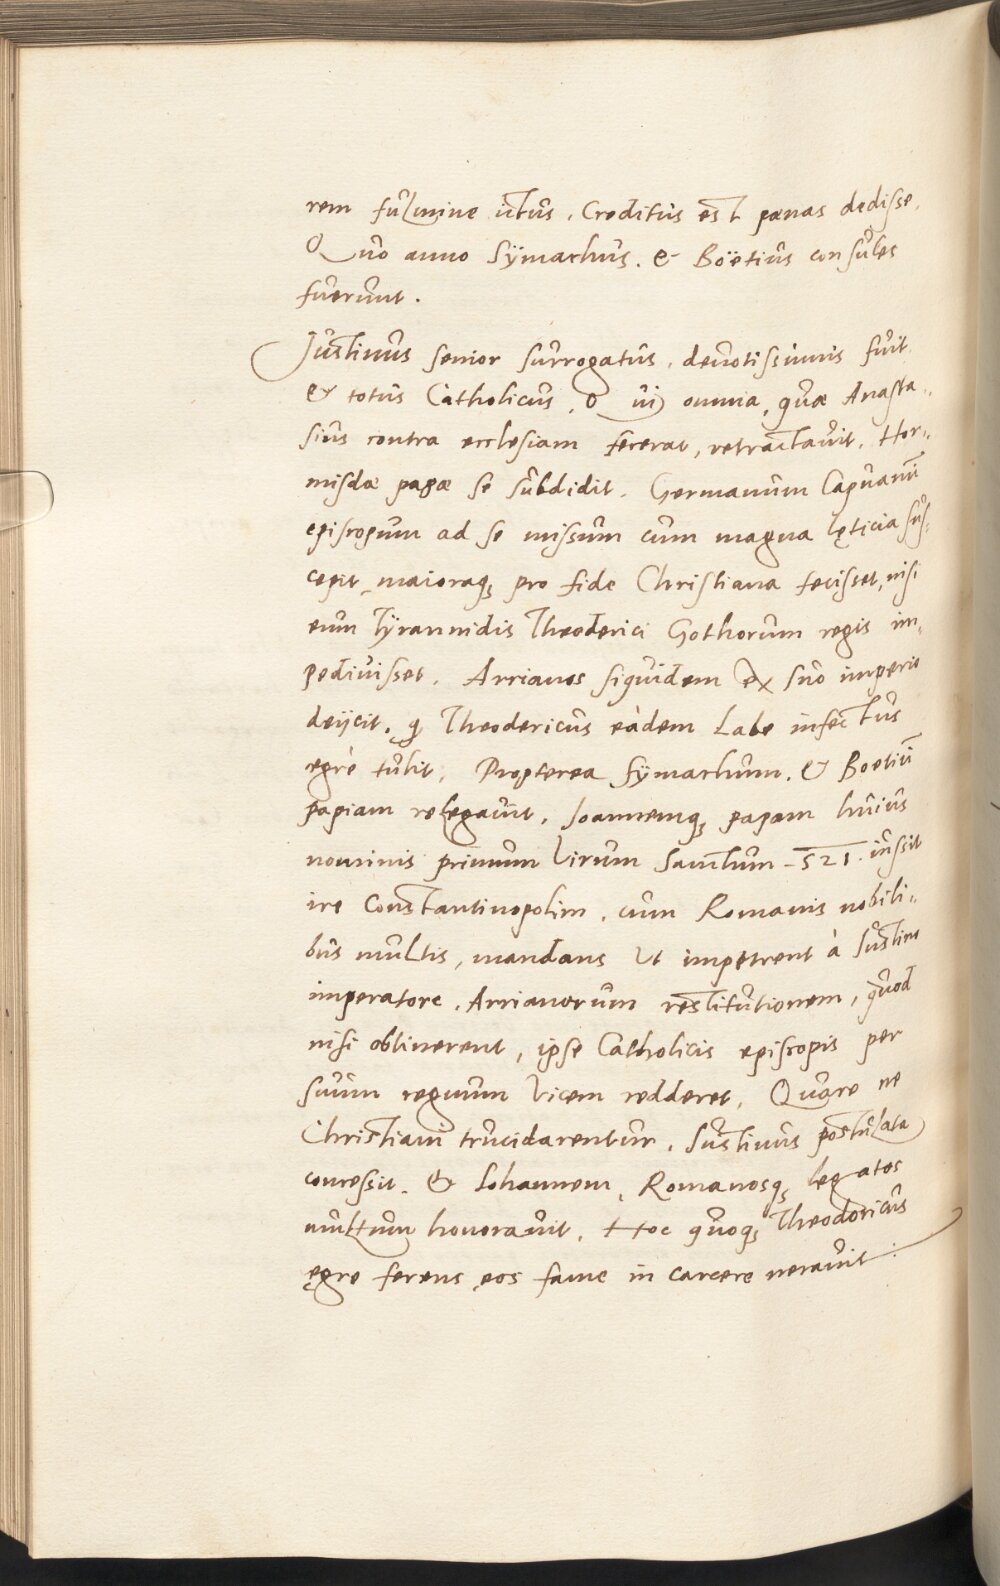 rem fulmine ictus. Creditus est pœnas dedisse.
Quo anno Sÿmachus. & Boëtius consules
fuerunt.
Justinus senior surrogatus, deuotissimus fuit
& totus Catholicus, omnia, quæ Anasta-
sius contra ecclesiam fecerat, retractauit. Hor-
misdæ papæ se subdidit. Germanum Capuanū
episcopum ad se missum cum magna lęticia sus-
cepit, maioraq; pro fide Christiana fecisset, nisi
eum Tÿrannidis Theoderici Gothorum regis im-
pediuisset. Arrianos siquidem ex suo imperio
deijcit, Theodericus eàdem Labe infectus
egrè tulit, Propterea Sÿmachum. & Boetiū
papiam relegauit, Joannemq; papam huius
nominis primum Virum Sanctum - 521. iussit
ire Constantinopolim, cum Romanis nobili-
bus multis, mandans Vt impetrent à Justino
imperatore, Arrianorum restitutionem, quod
nisi obtinerent, ipse Catholicis episcopis per
suum regnum Vicem redderet, Quare ne
Christiani trucidarentur, Justinus postulata
concessit. & Johannem, Romanosq; legatos
multum honorauit, Hoc quoq; Theodoricus
ęgre ferens, eos fame in carcere necauit.